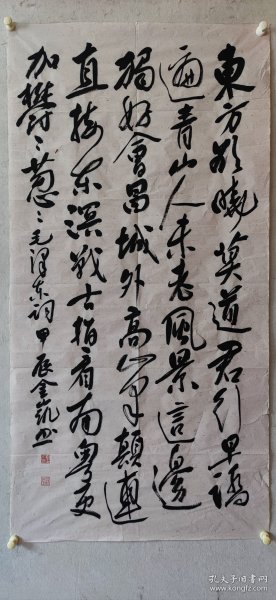 東方欲曉莫道君行早踏
遍青山人未老風景這邊
獨好會昌城外高峰顛連
直接东溟战士指看南粤更
加鬱〻葱〻毛澤东詞甲辰金凱书
孔夫子旧书网